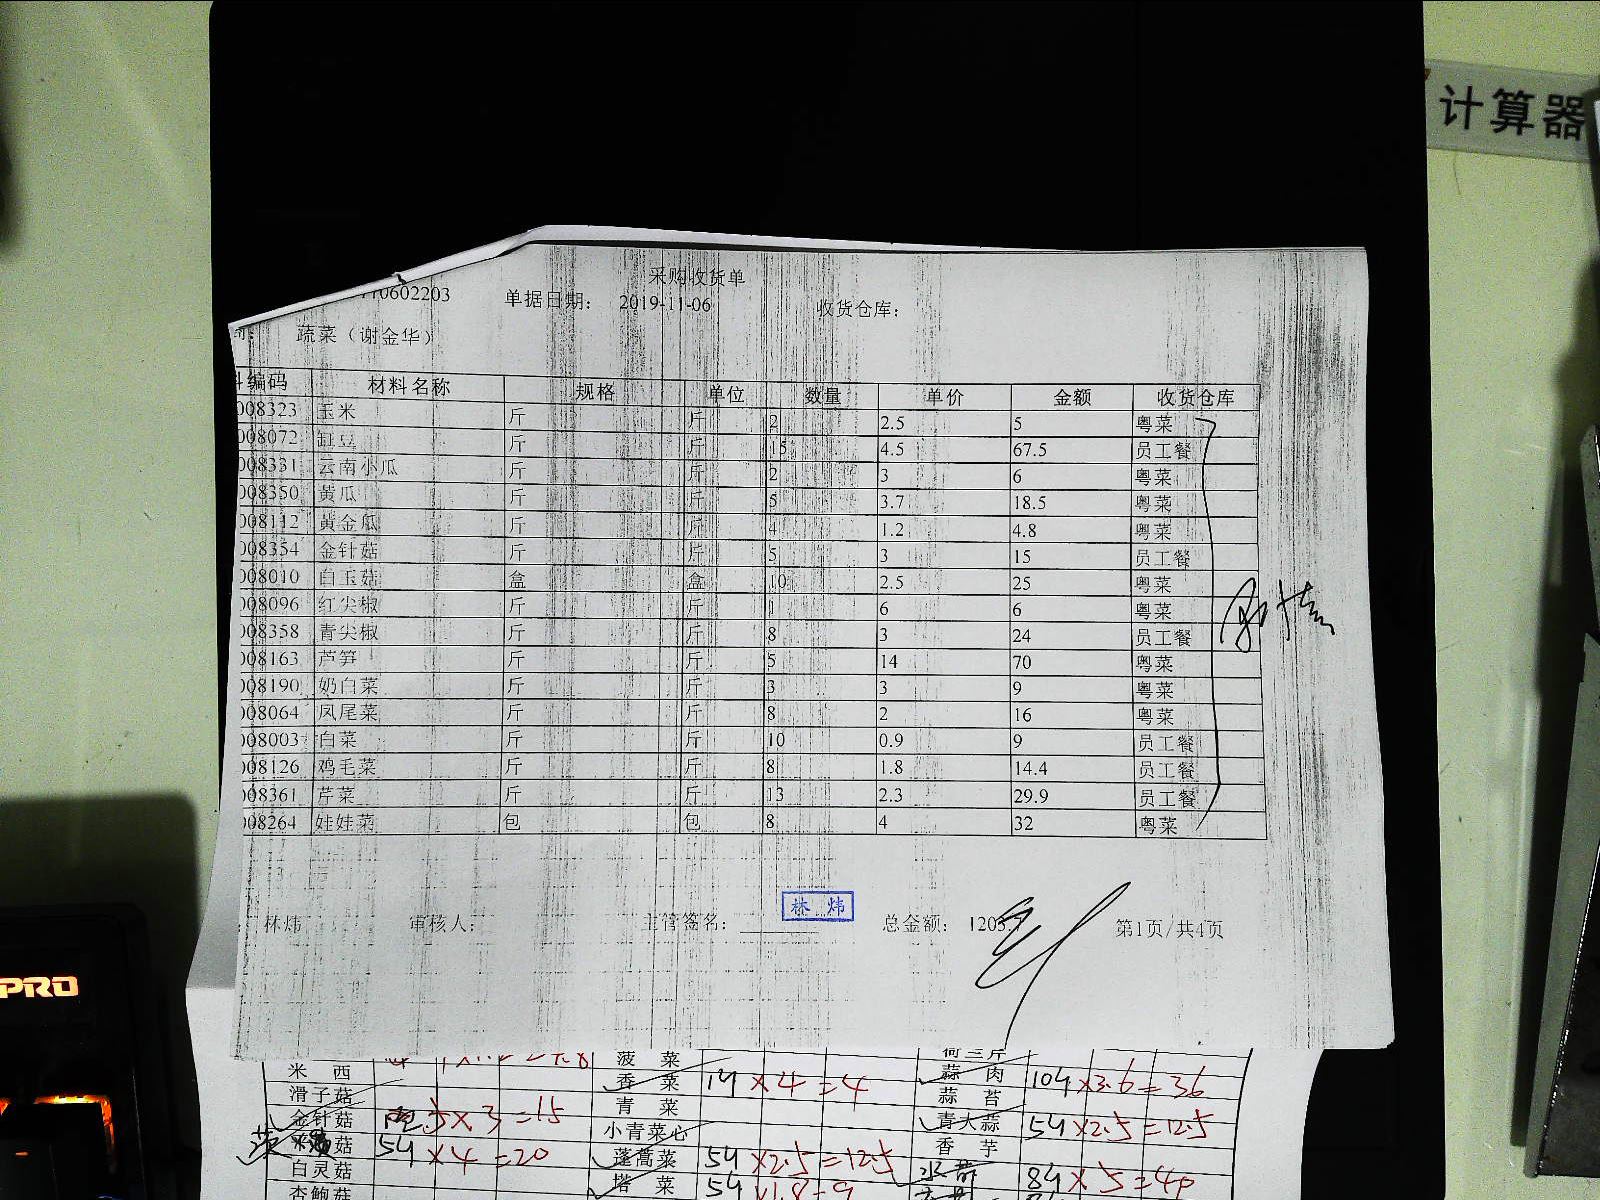 计算器
采购收货单
10602203 单据日期： 2019-11-06 收货仓库：
蔬菜（谢金华）
编码 材料名称 规格 单位 数量 单价 金额 收货仓库
008323 玉米 斤 斤 2 2.5 5 粤菜
008072 缸豆 斤 斤 15 4.5 67.5 员工餐
008331 云南小瓜 斤 斤 2 3 6 粤菜
008350 黄瓜 斤 斤 5 3.7 18.5 粤菜
008112 黄金瓜 斤 斤 4 1.2 4.8 粤菜
008354 金针菇 斤 斤 5 3 15 员工餐
008010 白玉菇 盒 盒 10 2.5 25 粤菜
008096 红尖椒 斤 斤 1 6 6 粤菜
008358 青尖椒 斤 斤 8 3 24 员工餐
008163 芦笋 斤 斤 5 14 70 粤菜
008190 奶白菜 斤 斤 3 3 9 粤菜
008064 凤尾菜 斤 斤 8 2 16 粤菜
008003 白菜 斤 斤 10 0.9 9 员工餐
008126 鸡毛菜 斤 斤 8 1.8 14.4 员工餐
008361 芹菜 斤 斤 13 2.3 29.9 员工餐
008264 娃娃菜 包 包 8 4 32 粤菜
林炜 审核人： 主管签名： 林炜 总金额： 1205.7 第1页/共4页
PRO
菠菜 荷兰芹
米西 香菜 1斤×4=4 蒜肉 10斤×3.6=36
滑子菇 青菜 蒜苔
金针菇 5×3=15 小青菜心 青大蒜 5斤×2.5=12.5
菇 5斤×4=20 蓬蒿菜 5斤×2.5=12.5 香芋
白灵菇 塔菜 5斤×1.8=9 8斤×5=40
杏鲍菇